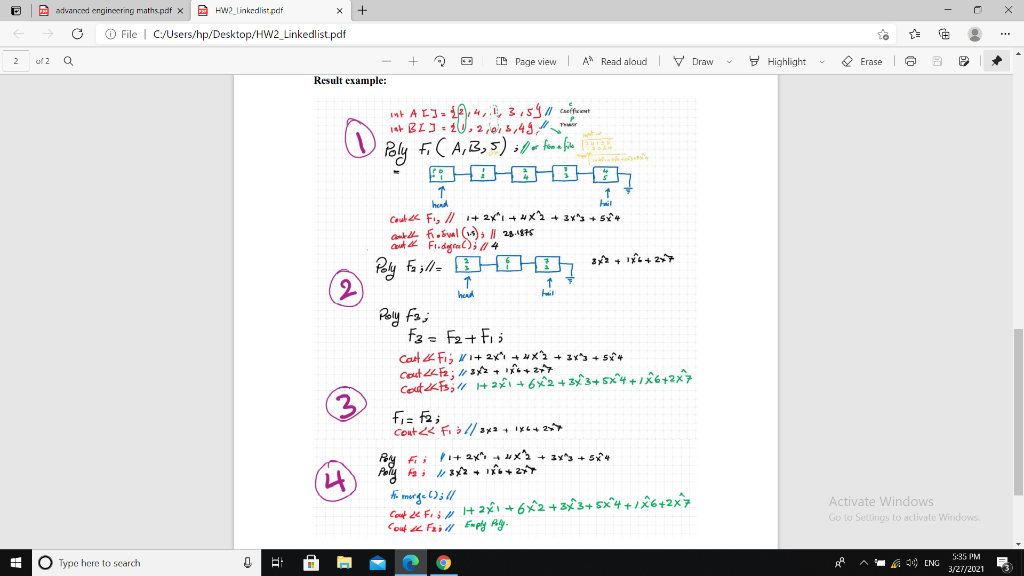 advanced engineering maths.pdf
HW2_Linkedlist.pdf
File | C:/Users/hp/Desktop/HW2_Linkedlist.pdf
2 of 2
Page view
Read aloud
Draw
Highlight
Erase
Result example:
int A[] = {2, 4, 1, 3, 5} // Coefficient
int B[] = {1, 2, 0, 3, 4}; // Power
1
Poly F1 ( A, B, 5) ; // or from a file
head
tail
cout << F1, // 1 + 2x^1 + 4x^2 + 3x^3 + 5x^4
cout << F1.Eval (1.5); // 28.1875
cout << F1.degree(); // 4
2
Poly F2 ; // =
3x^2 + 1x^6 + 2x^7
head
tail
Poly F3;
F3 = F2 + F1;
cout << F1; // 1 + 2x^1 + 4x^2 + 3x^3 + 5x^4
cout << F2; // 3x^2 + 1x^6 + 2x^7
cout << F3; // 1 + 2x^1 + 6x^2 + 3x^3 + 5x^4 + 1x^6 + 2x^7
3
F1 = F2;
cout << F1; // 3x^2 + 1x^6 + 2x^7
4
Poly F1; // 1 + 2x^1 + 4x^2 + 3x^3 + 5x^4
Poly F2; // 3x^2 + 1x^6 + 2x^7
merge(); //
cout << F1; // 1 + 2x^1 + 6x^2 + 3x^3 + 5x^4 + 1x^6 + 2x^7
cout << F2; // Empty Poly.
Activate Windows
Go to Settings to activate Windows.
Type here to search
ENG
5:35 PM
3/27/2021
3